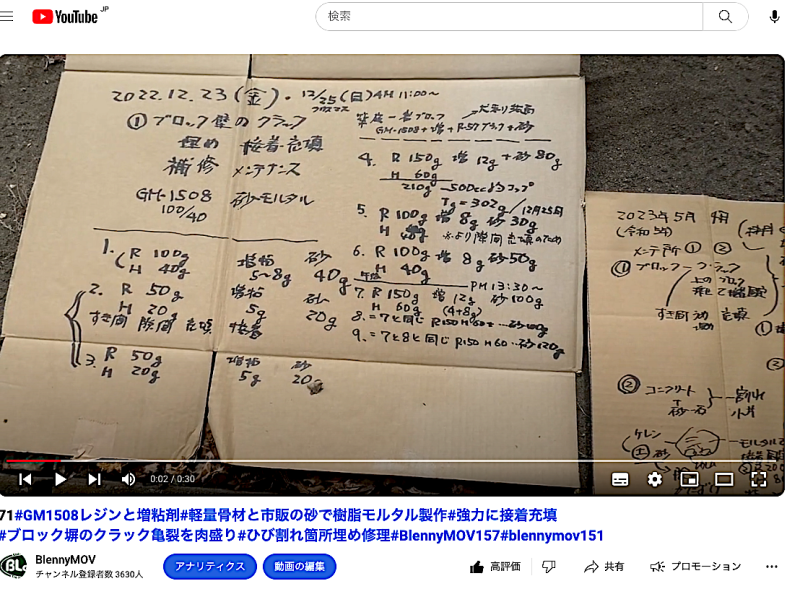 YouTube JP
検索
2022.12.23(金)・12/25(日)AH 11:00〜
クリスマス
① ブロック壁のクラック
埋め 接着・充填
補修 メンテナンス
GM-1508 砂モルタル
100/40
1. R 100g 増粘 砂
H 40g 5~8g 40g
2. R 50g 増粘 砂
H 20g 5g 20g
すき間 隙間 充填 接着
3. R 50g 増粘 砂
H 20g 5g 20g
GM-1508+増+R-57ブラック+砂
4. R 150g 増 12g + 砂 80g
H 60g
210g -500ccようコップ
Tg=302g / 12月25日
5. R 100g 増 8g 砂 30g
H 40g 隙間充填のため
6. R 100g 増 8g 砂 50g
H 40g
午後 PH 13:30〜
7. R 150g 増 12g 砂 100g
H 60g (4+8g)
8. = 7と同じ R150 H60 … 砂
9. = 7と8と同じ R150 H60 … 砂 120g
2023年5月
(令和5年)
メンテ所 ① ②
① ブロック クラック
上のブロック
すき間 充填
②
② コンクリート
砂
ケレン
① 砂
0:02 / 0:30
71#GM1508レジンと増粘剤#軽量骨材と市販の砂で樹脂モルタル製作#強力に接着充填
#ブロック塀のクラック亀裂を肉盛り#ひび割れ箇所埋め修理#BlennyMOV157#blennymov151
BL
BlennyMOV
チャンネル登録者数 3630人
アナリティクス
動画の編集
高評価
共有
プロモーション